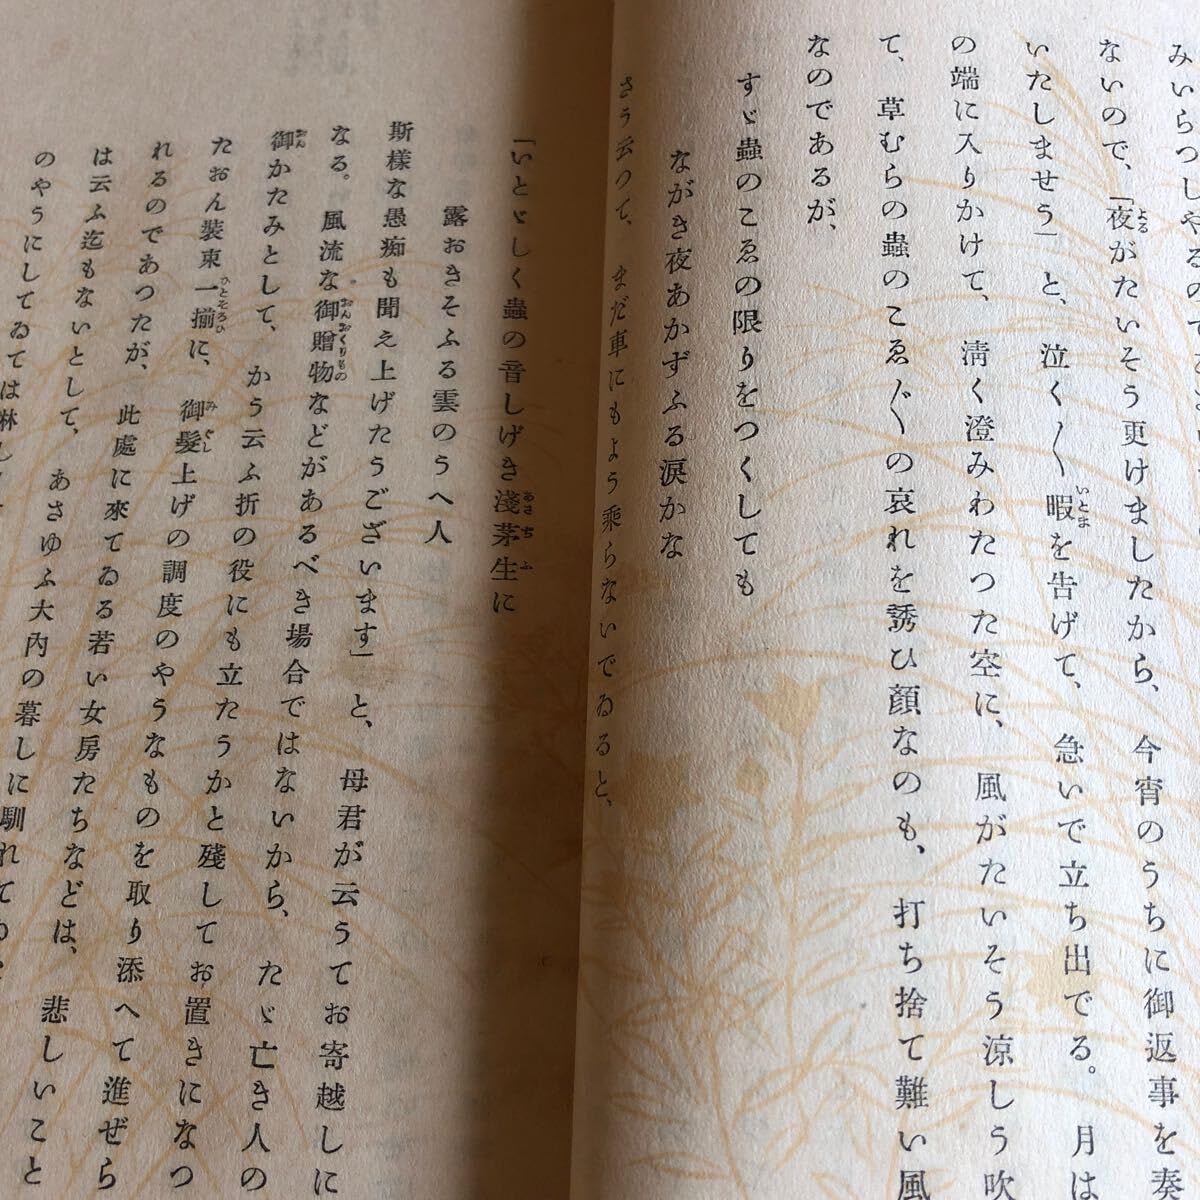 みいらつしやるので
ないので、「夜がたいそう更けましたから、今宵のうちに御返事を奏
いたしませう」と、泣く〳〵暇を告げて、急いで立ち出でる。月は
の端に入りかけて、淸く澄みわたつた空に、風がたいそう涼しう吹
て、草むらの蟲のこゑ〴〵の哀れを誘ひ顏なのも、打ち捨て難い風
なのであるが、
すゞ蟲のこゑの限りをつくしても
ながき夜あかずふる淚かな
さう云つて、まだ車にもよう乘らないでゐると、
「いとゞしく蟲の音しげき淺茅生に
露おきそふる雲のうへ人
斯樣な愚痴も聞え上げたうございます」と、母君が云うてお寄越しに
なる。風流な御贈物などがあるべき場合ではないから、たゞ亡き人の
御かたみとして、かう云ふ折の役にも立たうかと殘してお置きになつ
たおん裝束一揃に、御髮上げの調度のやうなものを取り添へて進ぜら
れるのであつたが、此處に來てゐる若い女房たちなどは、悲しいこと
は云ふ迄もないとして、あさゆふ大內の暮しに馴れて
のやうにしてゐては淋し